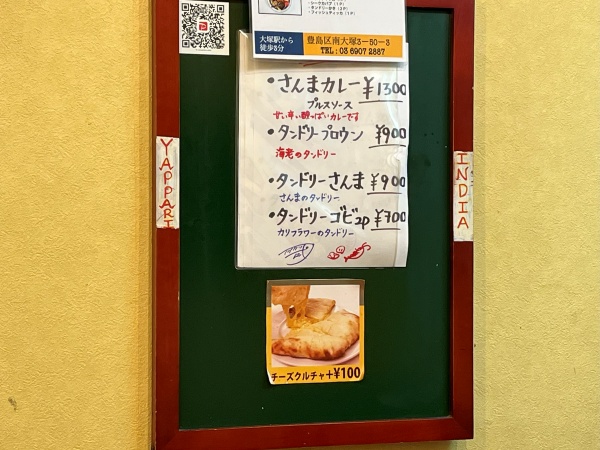 ・シークカバブ(1P)
・タンドリーかき(2P)
・フィッシュティッカ(1P)
大塚駅から
徒歩3分
豊島区南大塚3-50-3
TEL : 03 6907 2887
・さんまカレー ¥1300
プルスソース
甘い辛い酸っぱいカレーです
・タンドリープロウン ¥900
海老のタンドリー
・タンドリーさんま ¥900
さんまのタンドリー
・タンドリーゴビ2p ¥700
カリフラワーのタンドリー
YAPPARI
INDIA
チーズクルチャ+¥100